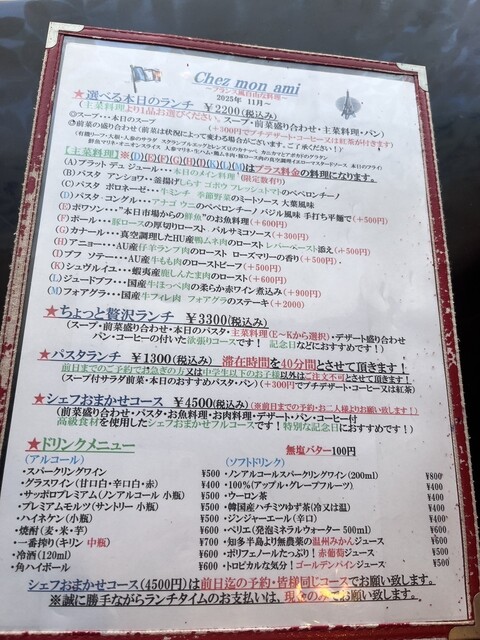 Chez mon ami
~フランス風自由な料理~
2025年 11月~
★選べる本日のランチ ￥2200(税込み)
(主菜料理より1品お選びください。スープ・前菜盛り合わせ・主菜料理・パン)
(+300円でプチデザート・コーヒー又は紅茶が付きます)
◎スープ・・・本日のスープ
◎前菜の盛り合わせ(前菜は状況によって変わる場合がございます、ご了承ください!)
【主菜料理】※(D)(E)(F)(G)(H)(I)(K)(L)(M)はプラス料金の料理になります。
(A)プラット デュ ジュール・・・本日のメイン料理(限定数有り)
(B)パスタ アンショワ・・釜揚げしらす ゴボウ フレッシュトマトのペペロンチーノ
(C)パスタ ボロネーゼ・・牛ミンチ 季節野菜のミートソース 大葉風味
(D)パスタ コングル・・アナゴ ウニのペペロンチーノ バジル風味 手打ち平麺で(+500円)
(E)ポワソン・・・"本日市場からの鮮魚"のお魚料理(+600円)
(F)ポール・・・豚ロースの厚切りロースト バルサミコソース(+300円)
(G)カナール・・・真空調理したHU産鴨ムネ肉のロースト レバーペースト添え(+500円)
(H)アニョー・・・AU産仔羊ランプ肉のロースト ローズマリーの香り(+500円)
(I)ブフ ソテー・・・AU産牛もも肉のローストビーフ(+500円)
(K)シュヴルイユ・・・蝦夷産鹿しんたま肉のロースト(+600円)
(L)ジュードブフ・・・国産牛ほっぺ肉の柔らか赤ワイン煮込み(+900円)
(M)フォアグラ・・・国産牛フィレ肉 フォアグラのステーキ(+2000)
★ちょっと贅沢ランチ ￥3300(税込み)
(スープ・前菜盛り合わせ・本日のパスタ・主菜料理(E~Kから選択)・デザート盛り合わせ
パン・コーヒーの付いた欲張りコースです! 記念日などにおすすめです!)
★パスタランチ ￥1300(税込み) 滞在時間を40分間とさせて頂きます!
前日までのご予約でお急ぎの方又は中学生以下のお子様以外はご注文不可とさせて頂きます!
(スープ付サラダ前菜・本日のおすすめパスタ・パン)(+300円でプチデザート・コーヒー又は紅茶)
★シェフおまかせコース ￥4500(税込み)(※前日までの予約・お二人様よりお願い致します!)
(前菜盛り合わせ・パスタ・お魚料理・お肉料理・デザート・パン・コーヒー付
高級食材を使用したシェフおまかせフルコースです!特別な記念日におすすめです!)
★ドリンクメニュー 無塩バター100円
(アルコール)
・スパークリングワイン ￥500
・グラスワイン(甘口白・辛口白・赤) ￥400
・サッポロプレミアム(ノンアルコール 小瓶) ￥500
・プレミアムモルツ(サントリー 小瓶) ￥500
・ハイネケン(小瓶) ￥500
・焼酎(麦・米・芋) ￥600
・一番搾り(キリン 中瓶) ￥700
・冷酒(120ml) ￥600
・角ハイボール ￥600
(ソフトドリンク)
・ノンアルコールスパークリングワイン(200ml) ￥800
・100%(アップル・グレープフルーツ) ￥400
・ウーロン茶 ￥400
・韓国産ハチミツゆず茶(冷又は温) ￥400
・ジンジャーエール(辛口) ￥400
・ペリエ(発泡ミネラルウォーター 500ml) ￥600
・知多半島より無農薬の温州みかんジュース ￥500
・ポリフェノールたっぷり!赤葡萄ジュース ￥500
・トロピカルな気分!ゴールデンパインジュース ￥500
シェフおまかせコース(4500円)は前日迄の予約・皆様同じコースでお願い致します。
※誠に勝手ながらランチタイムのお支払いは、現金のみでお願い致します。